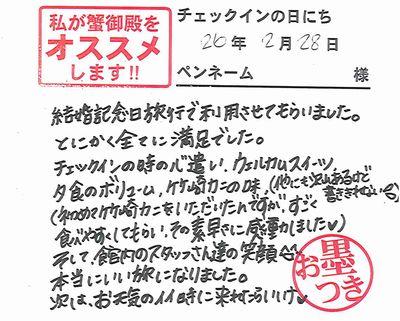 私が蟹御殿を
オススメ
します!!
チェックインの日にち
26年 2月 28日
ペンネーム 様
結婚記念日旅行で利用させてもらいました。
とにかく全てに満足でした。
チェックインの時の心遣い、ウェルカムスイーツ、
夕食のボリューム、竹崎カニの味、(他にも沢山あるけど書ききれない
(初めて竹崎カニをいただいたんですが、すごく
食べやすくしてもらい、その素早さに感動しました♡)
そして、館内のスタッフさん達の笑顔
本当にいい旅になりました。
次は、お天気のイイ時に来れたらいいけ♡
お墨つき